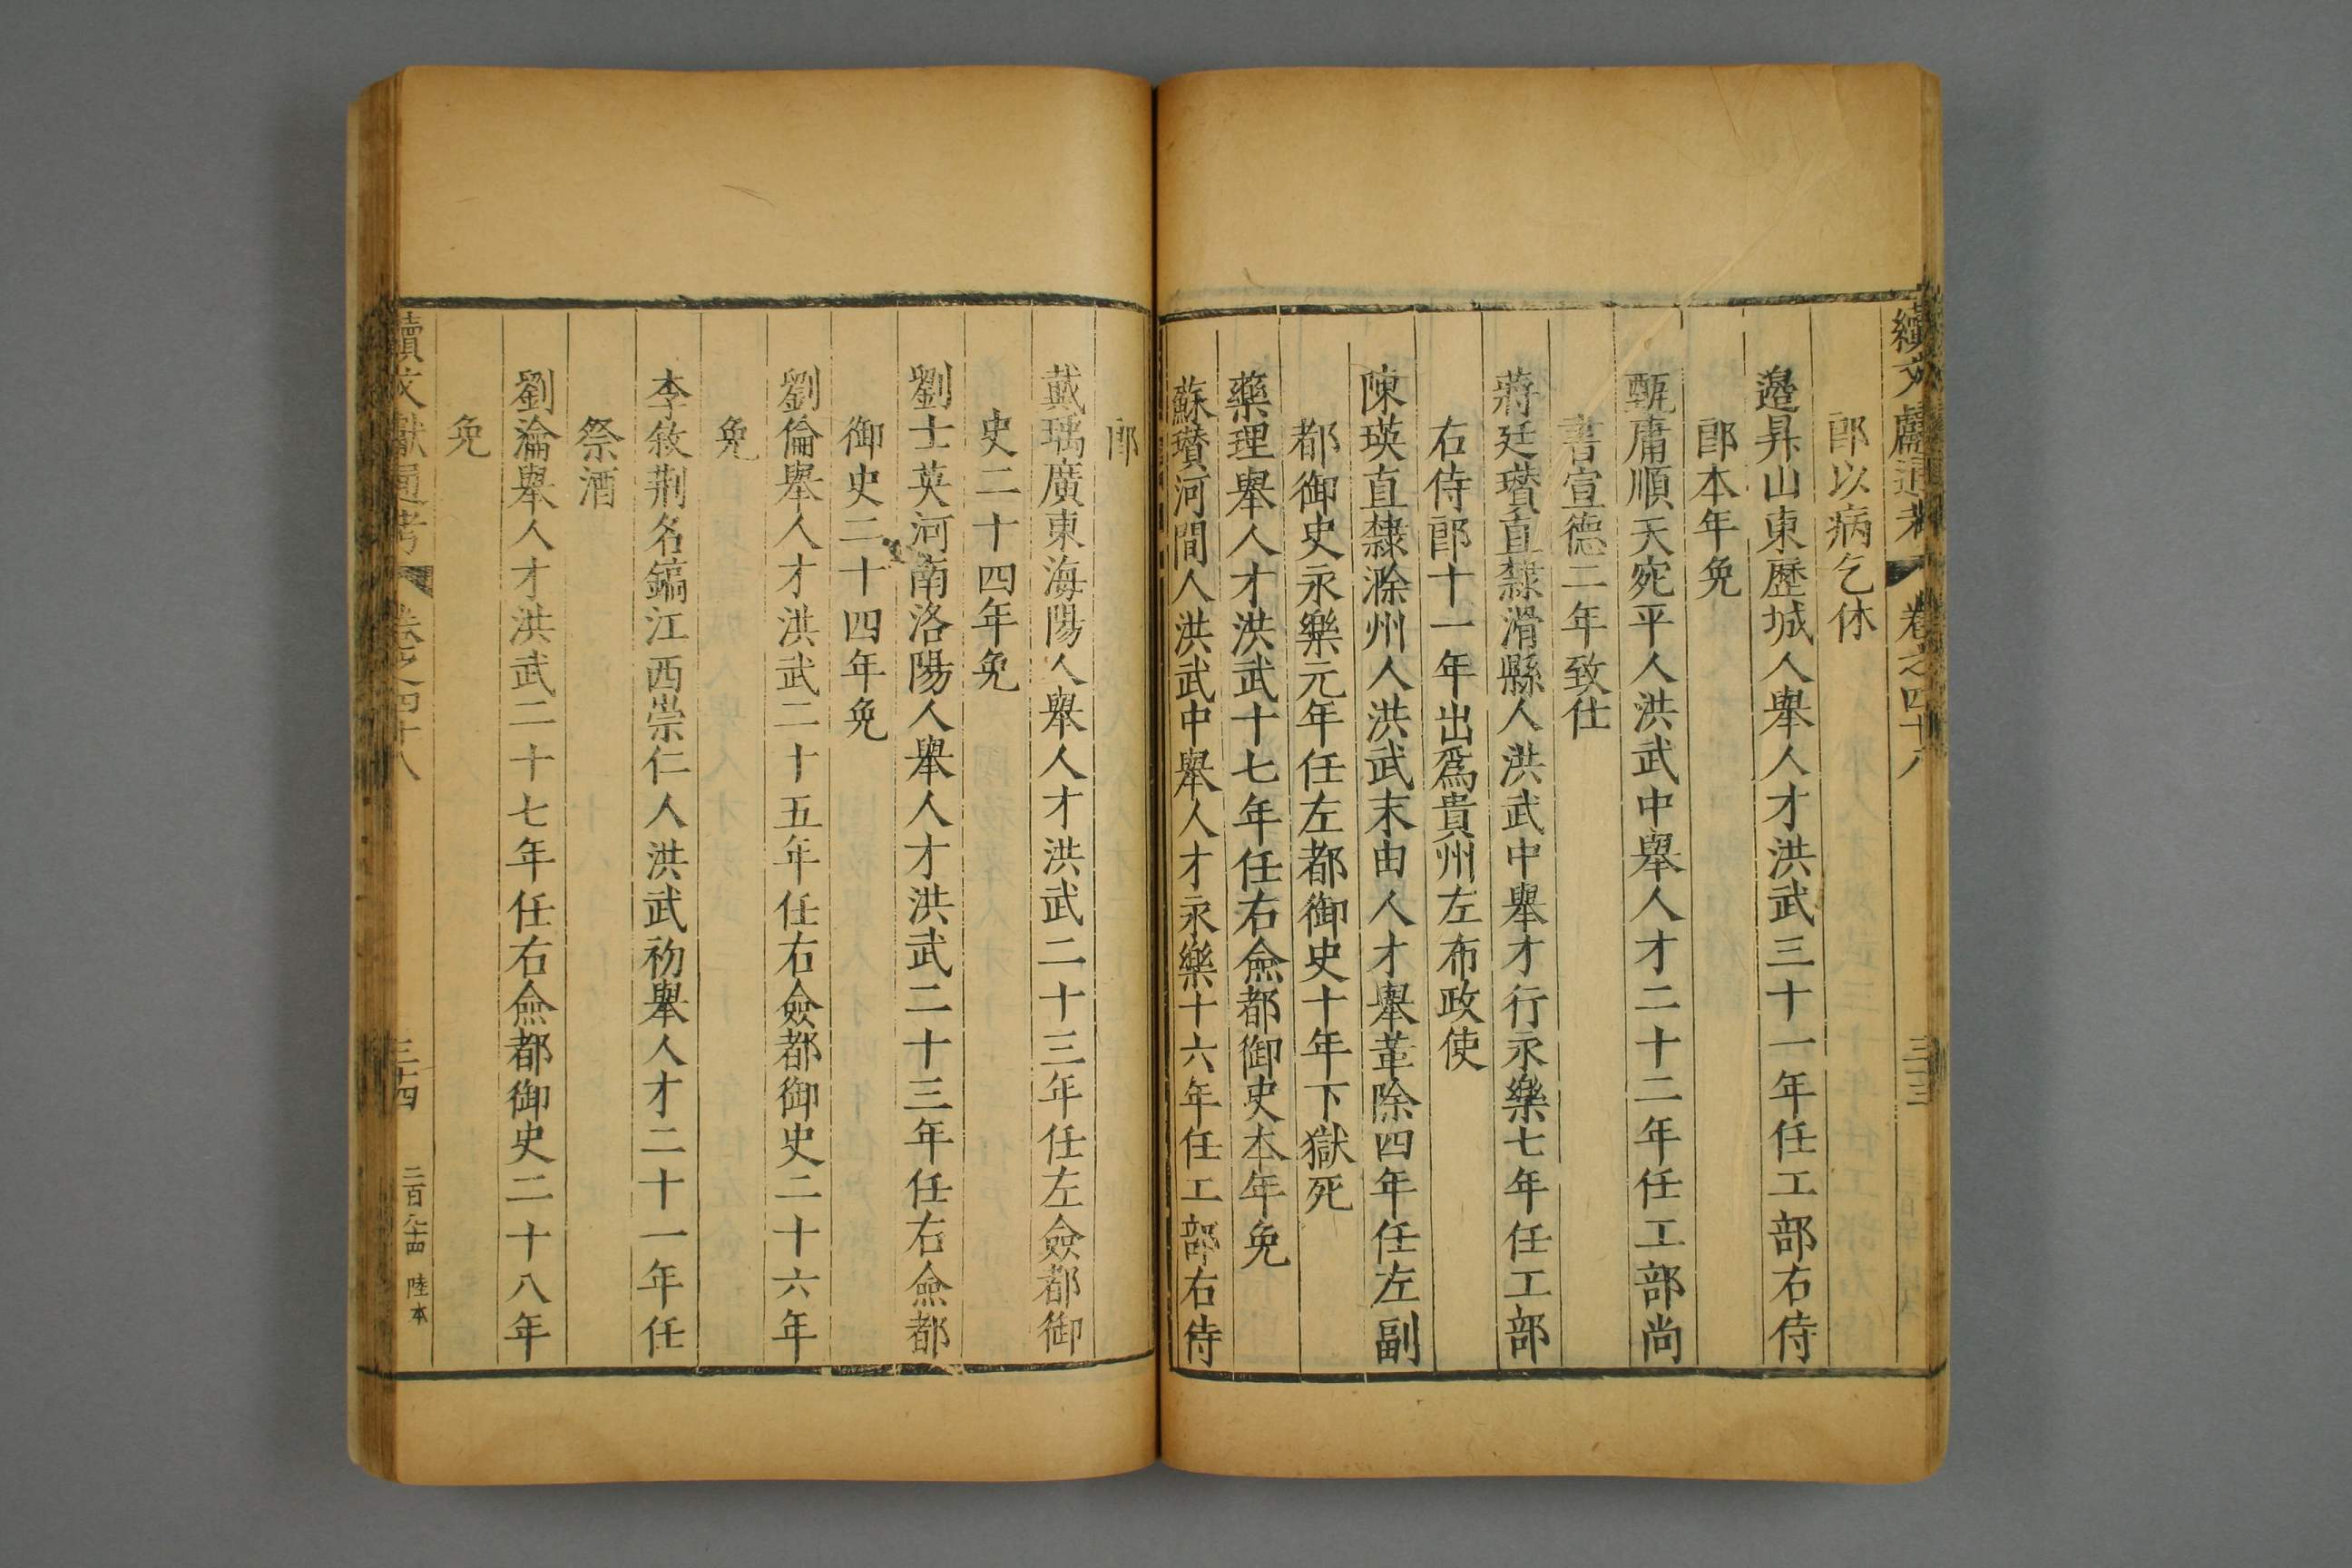 續文獻通考 卷之四十八 三十三
郎以病乞休
邉昇山東歷城人舉人才洪武三十一年任工部右侍
郎本年免
甄庸順天宛平人洪武中舉人才二十二年任工部尚
書宣德二年致仕
蔣廷瓚直隸滑縣人洪武中舉才行永樂七年任工部
右侍郎十一年出爲貴州左布政使
陳瑛直隸滁州人洪武末由人才舉革除四年任左副
都御史永樂元年任左都御史十年下獄死
藥理舉人才洪武十七年任右僉都御史本年免
蘇瓚河間人洪武中舉人才永樂十六年任工部右侍
郎
戴瑀廣東海陽人舉人才洪武二十三年任左僉都御
史二十四年免
劉士英河南洛陽人舉人才洪武二十三年任右僉都
御史二十四年免
劉倫舉人才洪武二十五年任右僉都御史二十六年
免
李敘荆名鎬江西崇仁人洪武初舉人才二十一年任
祭酒
劉瀹舉人才洪武二十七年任右僉都御史二十八年
免
續文獻通考 卷之四十八 三十四 二百六十四 陸本